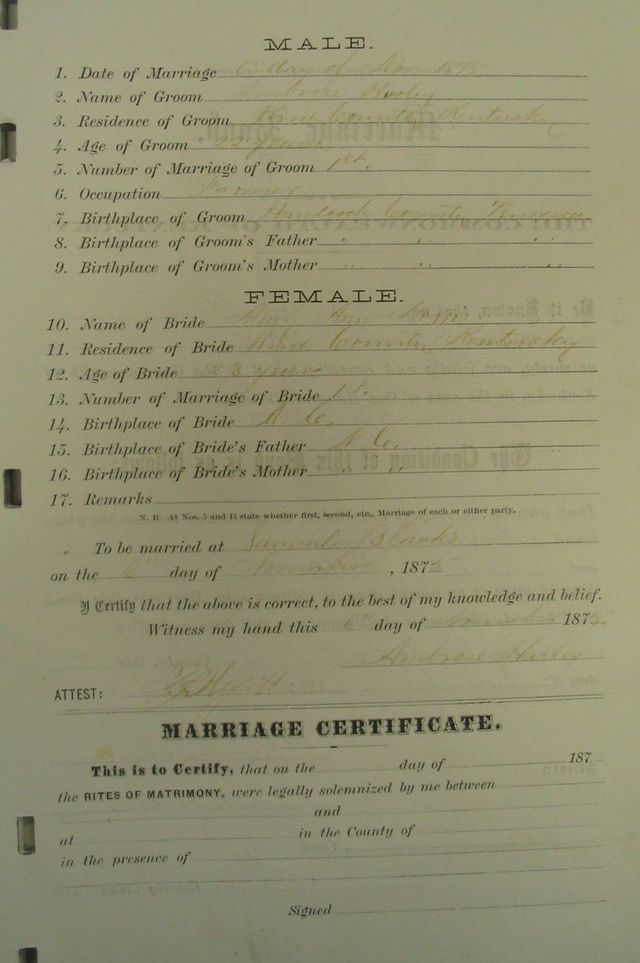 MALE.
1. Date of Marriage 6th day of Nov 1872
2. Name of Groom Ambrose Hurley
3. Residence of Groom Knox County Kentucky
4. Age of Groom years
5. Number of Marriage of Groom 1st.
6. Occupation Farmer
7. Birthplace of Groom Handcock County
8. Birthplace of Groom's Father " " "
9. Birthplace of Groom's Mother " " "
FEMALE.
10. Name of Bride Mary Ann
11. Residence of Bride Knox County Kentucky
12. Age of Bride 23 years
13. Number of Marriage of Bride 1st.
14. Birthplace of Bride N. C.
15. Birthplace of Bride's Father N. C.
16. Birthplace of Bride's Mother " "
17. Remarks
N. B. At Nos. 5 and 13 state whether first, second, etc., Marriage of each or either party.
To be married at Samuel Blacks
on the 6th day of November, 1872
I Certify that the above is correct, to the best of my knowledge and belief.
Witness my hand this 6th day of November 1872
Ambrose Hurley
ATTEST:
MARRIAGE CERTIFICATE.
This is to Certify, that on the day of 187
the RITES OF MATRIMONY, were legally solemnized by me between
and
at in the County of
in the presence of
Signed